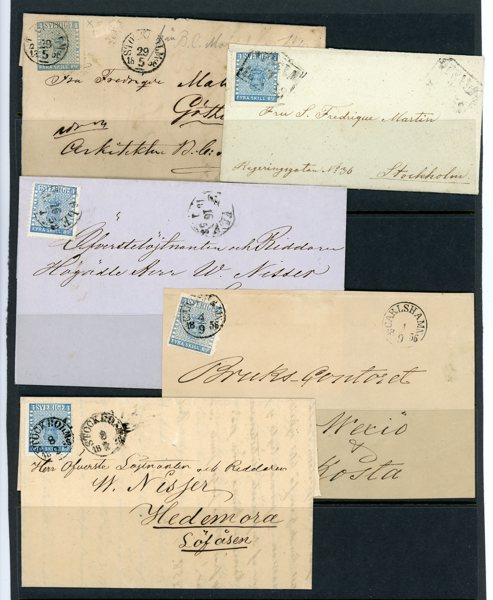 SVERIGE
STOCKHOLM
29
5
18 56
Fru Fredrique
Göt
Arkitekten
SVERIGE
FYRA SKILL. Bco
Fru S. Fredrique Martin
Regeringsgatan No 36
Stockholm
SVERIGE
FYRA SKILL. Bco
Öfverstelöjtnanten och Riddaren
Högädle Herr W. Nisser
FYRA SKILL. Bco
CARLSHAMN
4
9
18 56
CARLSHAMN
4
9
18 56
Bruks-Contoret
Wexiö
&
Kosta
SVERIGE
FYRA SKILL. Bco
STOCKHOLM
STOCKHOLM
Herr Öfverste Löjtnanten och Riddaren
W. Nisser
Hedemora
Löfåsen